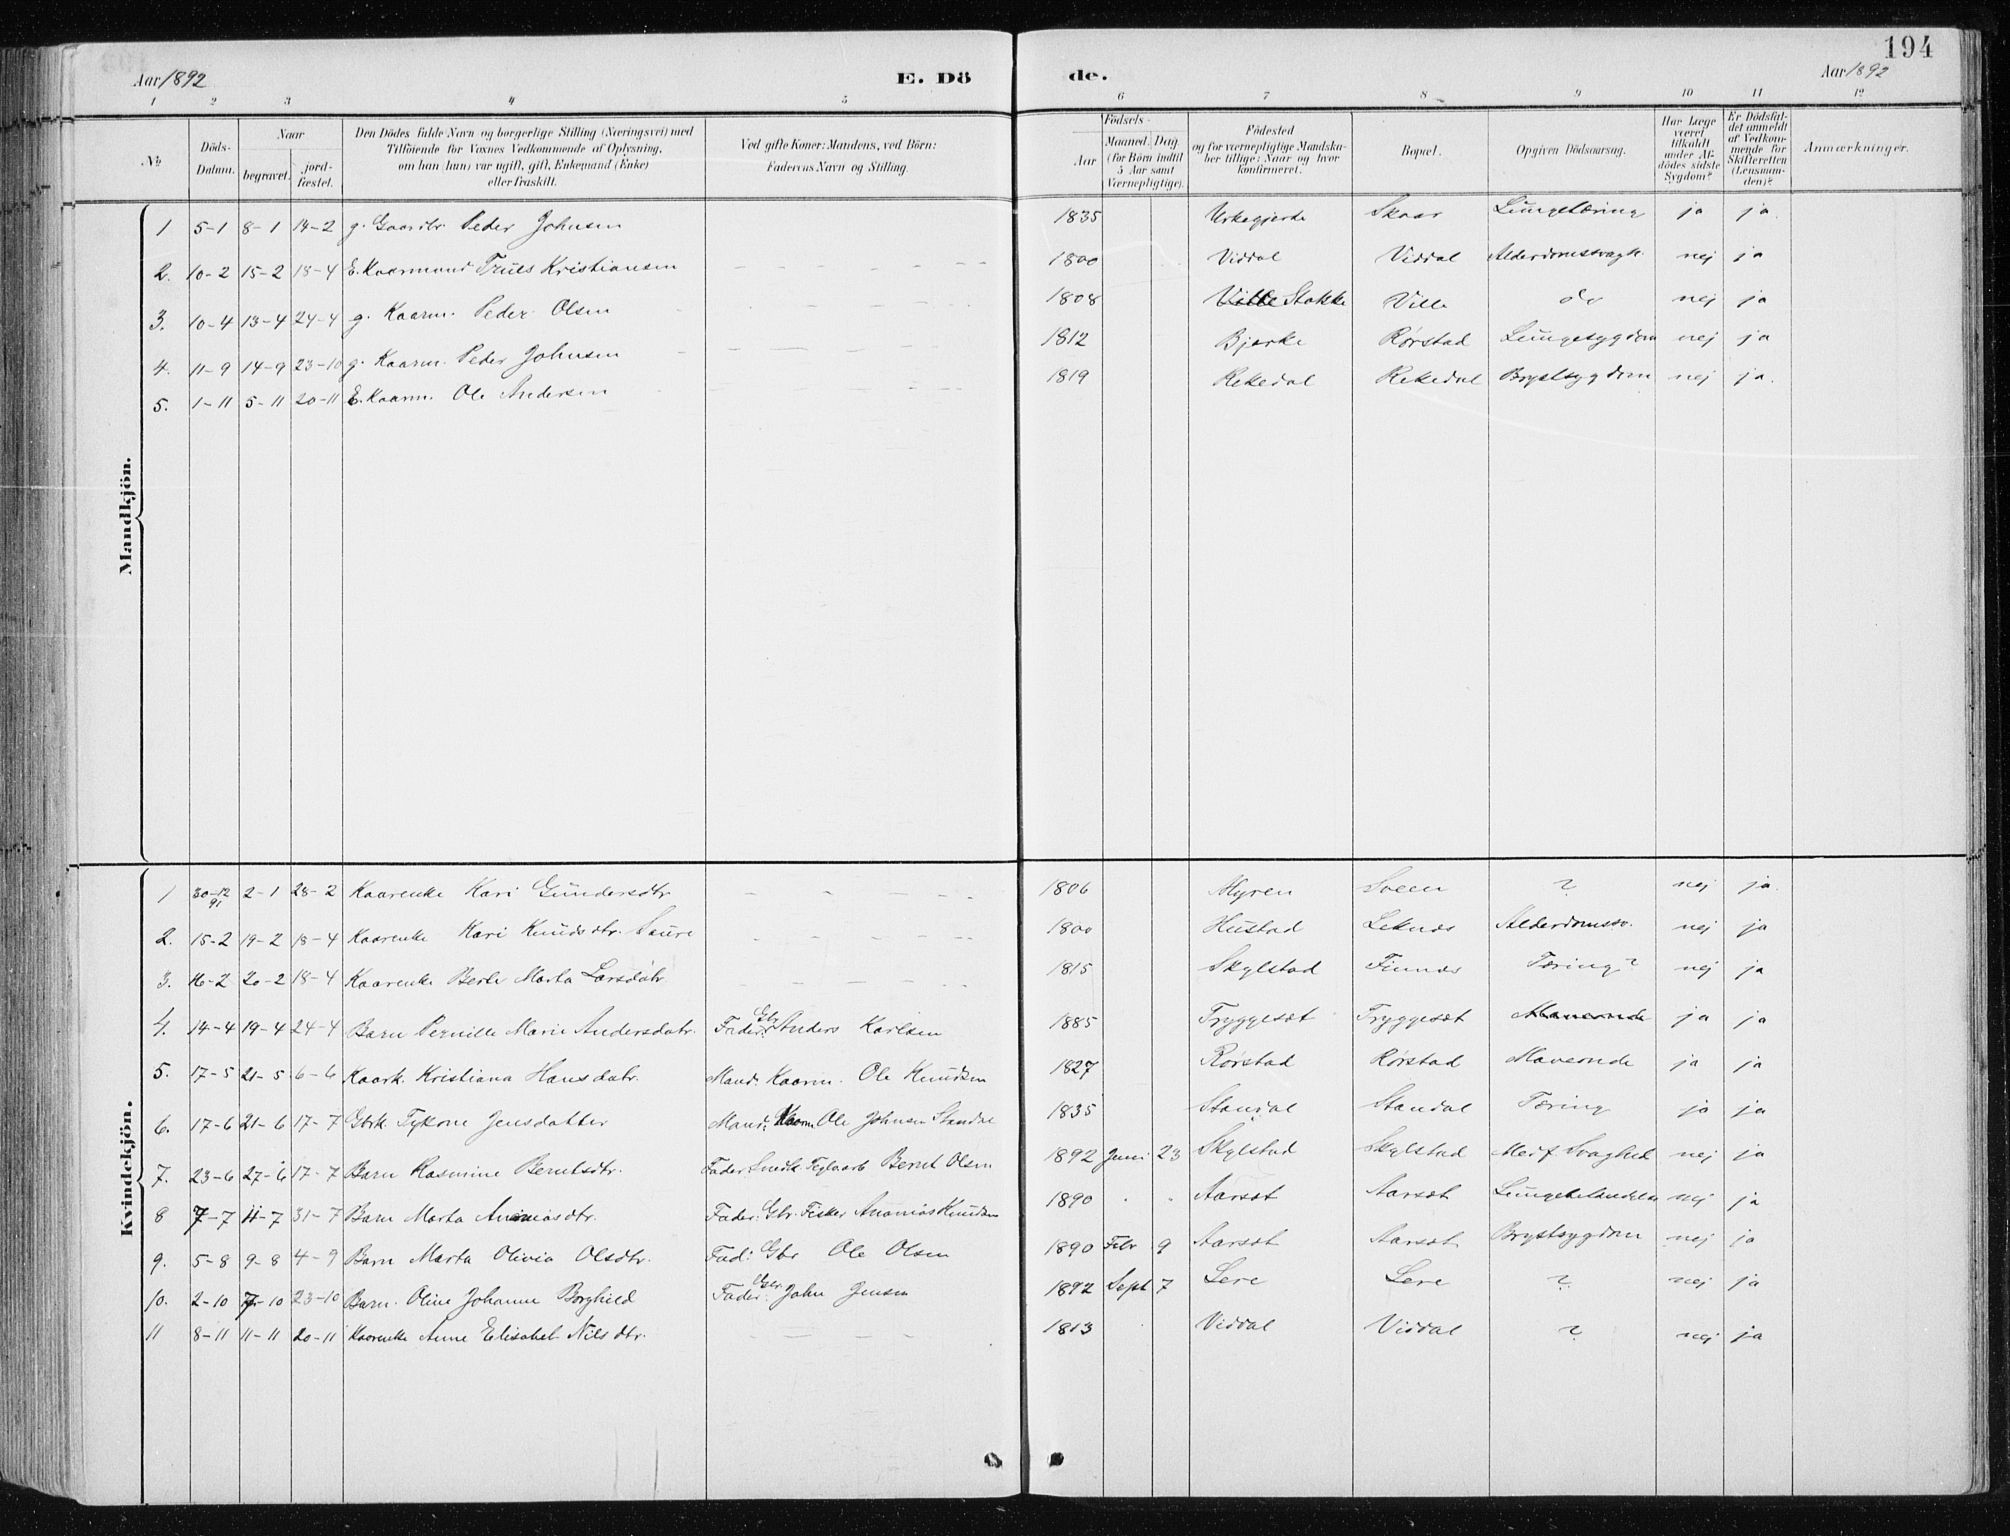 194
Aar 1892 E. Dö de. Aar 1892
1 2 3 4 5 6 7 8 9 10 11 12
No. Döds-Datum. Naar begravet. jord-fæstet. Den Dödes fulde Navn og borgerlige Stilling (Næringsvei) med Tilföiende for Voxnes Vedkommende af Oplysning, om han (hun) var ugift, gift, Enkemand (Enke) eller fraskilt. Ved gifte Koner: Mandens, ved Börn: Faderens Navn og Stilling. Födsels- Aar Maaned. Dag. (for Börn indtil 5 Aar samt Værnepligtige). Födested og for værnepligtige Mandskaber tillige: Naar og hvor konfirmeret. Bopæl. Opgiven Dödsaarsag. Har Læge været tilkaldt under Afdödes sidste Sygdom? Er Dödsfaldet anmeldt af Vedkommende for Skifteretten (Lensmanden)? Anmærkninger.
Mandkjön.
1 5-1 8-1 14-2 g. Gaardbr. Peder Johnsen 1835 Urkegjerde Skaar Lungetæring ja ja.
2. 10-2 15-2 18-4 E. Kaarmand Truls Kristiansen 1800 Viddal Viddal Alderdomssvagh. nej ja
3. 10-4 13-4 24-4 g. Kaarm. Peder Olsen 1808 Ville Stokke Ville do nej ja
4. 11-9 14-9 23-10 g. Kaarm. Peder Johnsen 1812 Bjerke Rørstad Lungesygdom nej ja
5. 1-11 5-11 20-11 E. Kaarm. Ole Andersen 1819 Rekedal Rekedal Brystsygdom nej ja.
Kvindekjön.
1 30-12 91 2-1 28-2 Kaarenke Kari Gundersdtr. 1806 Myren Sveen ? nej ja.
2. 15-2 19-2 18-4 Kaarenke Kari Knudsdtr. Saure 1800 Hustad Leknes Alderdomssv. nej ja
3. 16-2 20-2 18-4 Kaarenke Berte Marta Larsdatr. 1815 Skylstad Finnes Tæring? nej ja
4. 14-4 19-4 24-4 Barn Pernille Marie Andersdatr. Fader: Gbr. Anders Karlsen 1885 Tryggesæt Tryggesæt Maveonde ja ja
5. 17-5 21-5 6-6 Kaark. Kristiana Hansdatr. Mand: Kaarm. Ole Knudsen 1827 Rørstad Rørstad Maveonde ja ja
6. 17-6 21-6 17-7 Gbrk. Jensdatter Mand: Kaarm Ole Johnsen Standal 1835 Standal Standal Tæring ja ja
7. 23-6 27-6 17-7 Barn Rasmine Berntsdtr. Fader Bernt Olsen 1892 Juni 23 Skylstad Skylstad Medf. Svaghed nej ja
8 7-7 11-7 31-7 Barn Marta Ananiasdtr. Fader: Gbr. Fisker Ananias Knudsen 1890 " " Aarsæt Aarsæt nej ja
9. 5-8 9-8 4-9 Barn Marta Olivia Olsdtr. Fad: Gbr Ole Olsen 1890 Febr 9 Aarsæt Aarsæt Brystsygdom nej ja
10. 2-10 7-10 23-10 Barn. Oline Johanne Borghild Fader: Gbr. John Jensen 1892 Sept 7 Lere Lere ? nej ja
11 8-11 11-11 20-11 Kaarenke Anne Elisabet Nilsdtr. 1813 Viddal Viddal ? nej ja